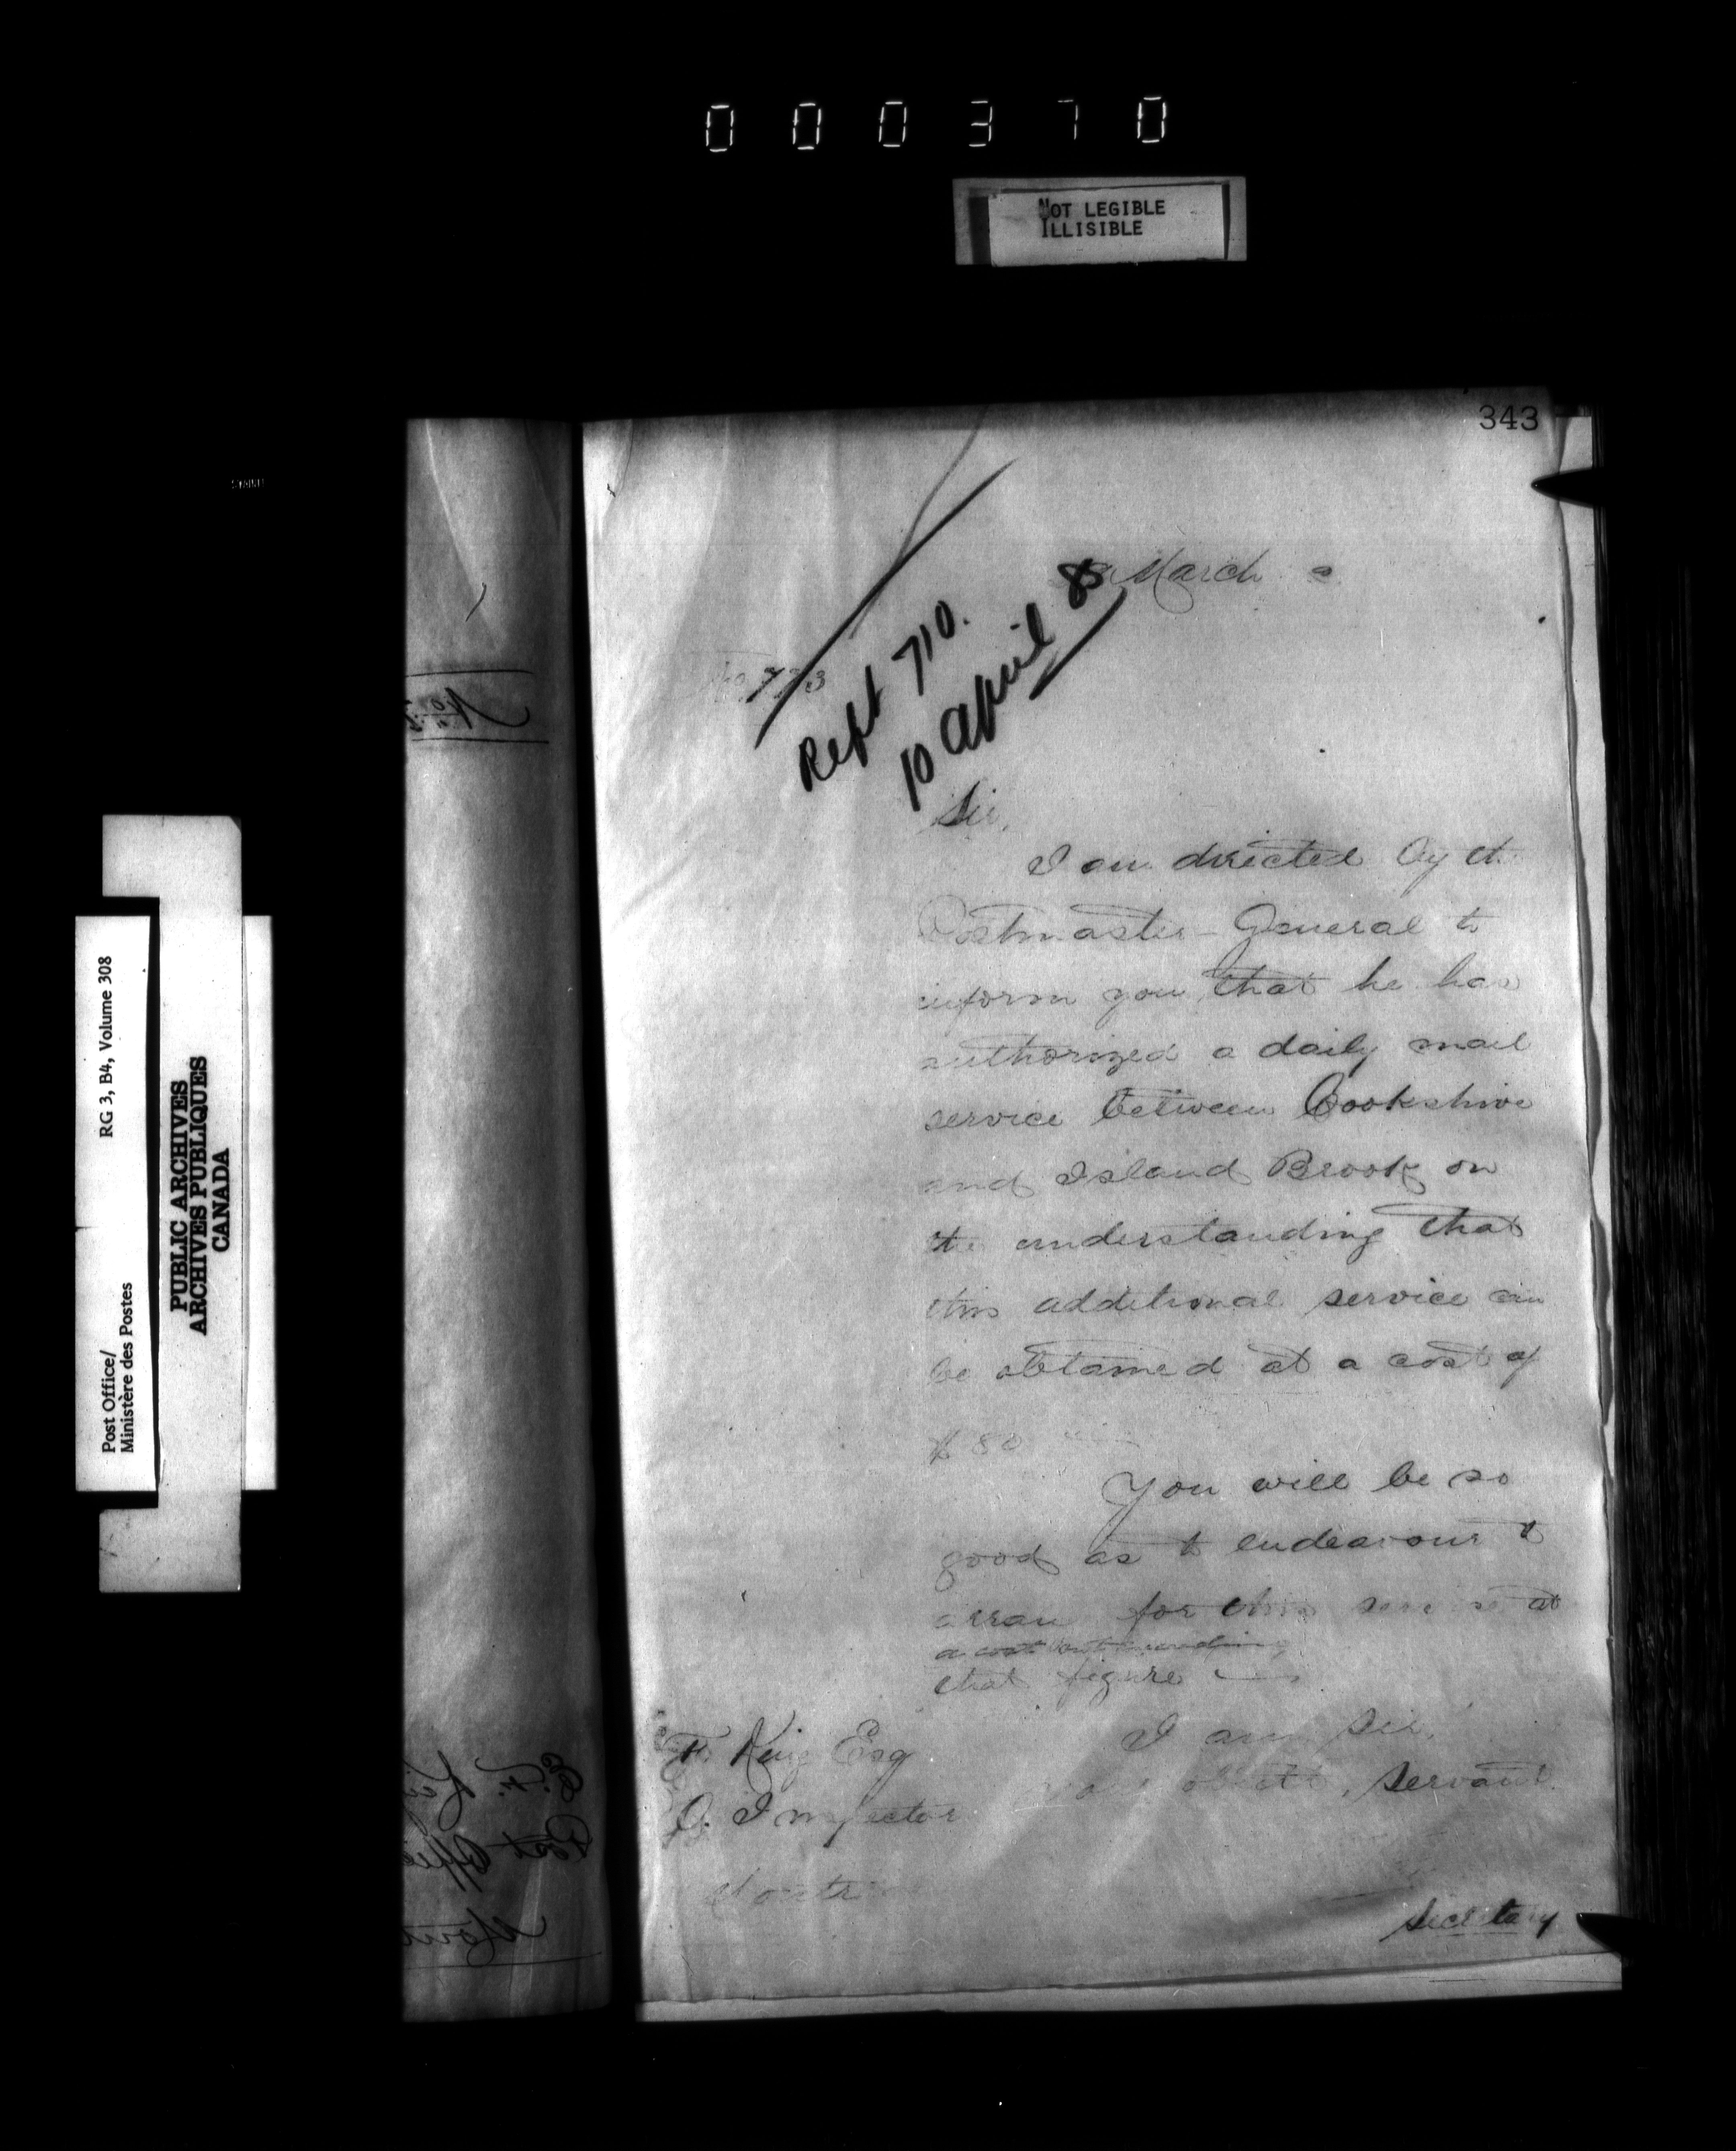 000370
NOT LEGIBLE
ILLISIBLE
343
March
No 773
Rept 710.
10 April 85
Sir,
I am directed by the
Postmaster-General to
inform you that he has
authorized a daily mail
service between Cookshire
and Island Brook on
the understanding that
this additional service can
be obtained at a cost of
$80
You will be so
good as to endeavour to
for this service at
a cost not exceeding
that figure
I am, Sir,
obedt. servant
F. King Esq
O. Inspector
Secretary
Post Office/
Ministère des Postes
RG 3, B4, Volume 308
PUBLIC ARCHIVES
ARCHIVES PUBLIQUES
CANADA